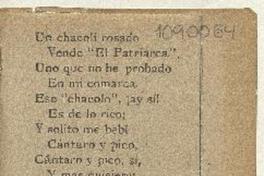 1090064
Un chacolí rosado
Vende "El Patriarca",
Uno que no he probado
En mi comarca
Ese "chacolo", ¡ay sí!
Es de lo rico;
Y solito me bebí
Cántaro y pico,
Cántaro y pico, sí,
Y mas quisiera